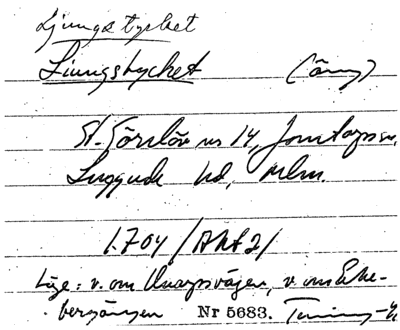 Ljungstycket
Ljungstycket (äng)
St. Görslöv nr 14, Jonstorps sn,
Luggude hd, Mlm.
1704 /Akt 2/
Läge: v. om Unarpsvägen, v. om Eke-
bergängen Nr 5683.